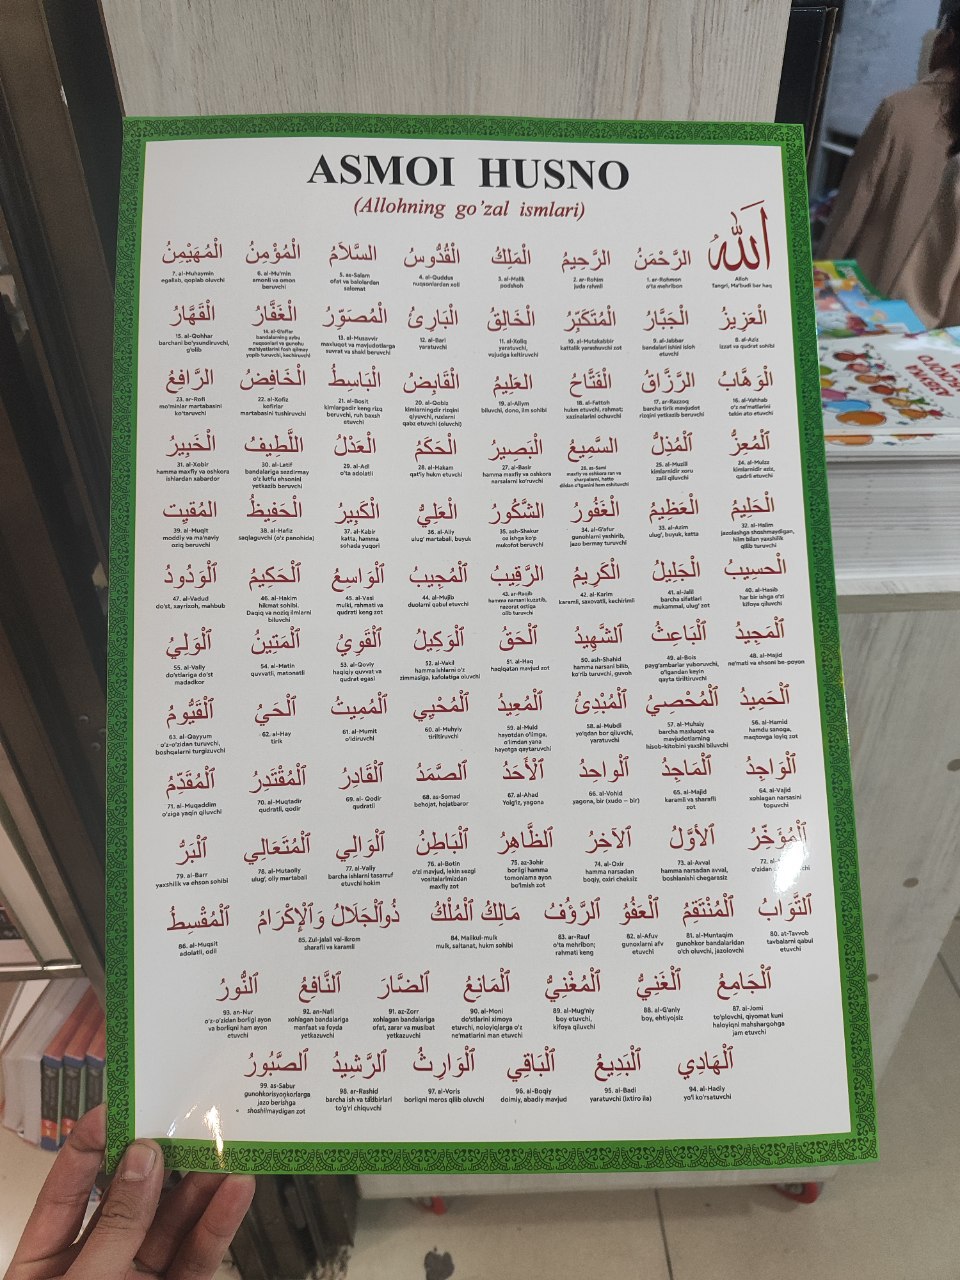 ASMOI HUSNO
(Allohning go'zal ismlari)
اَللّٰهُ
Alloh
Tangri, Ma'budi bar haq
الْمُهَيْمِنُ الْمُؤْمِنُ السَّلاَمُ الْقُدُّوسُ الْمَلِكُ الرَّحِيمُ الرَّحْمَنُ
7. al-Muhaymin
egallab, qoplab oluvchi
6. al-Mu'min
omonli va omon
beruvchi
5. as-Salam
ofat va balolardan
salomat
4. al-Quddus
nuqsonlardan xoli
3. al-Malik
podshoh
2. ar-Rohim
juda rahmli
1. ar-Rohman
o'ta mehribon
الْقَهَّارُ الْغَفَّارُ الْمُصَوِّرُ الْبَارِئُ الْخَالِقُ الْمُتَكَبِّرُ الْجَبَّارُ الْعَزِيزُ
15. al-Qohhar
barchani bo'ysundiruvchi,
g'olib
14. al-G'affar
bandalarning aybu
nuqsonlari va gunohu
ma'siyatlarini fosh qilmay
yopib turuvchi, kechiruvchi
13. al-Musavvir
maxluqot va mavjudotlarga
suvrat va shakl beruvchi
12. al-Bari
yaratuvchi
11. al-Xoliq
yaratuvchi,
vujudga keltiruvchi
10. al-Mutakabbir
kattalik yarashuvchi zot
9. al-Jabbar
bandalari ishini isloh
etuvchi
8. al-Aziz
izzat va qudrat sohibi
الرَّافِعُ الْخَافِضُ الْبَاسِطُ الْقَابِضُ الْعَلِيمُ الْفَتَّاحُ الرَّزَّاقُ الْوَهَّابُ
23. ar-Rofi
mo'minlar martabasini
ko'taruvchi
22. al-Xofiz
kofirlar
martabasini tushiruvchi
21. al-Bosit
kimlargadir keng rizq
beruvchi, ruh baxsh
etuvchi
20. al-Qobiz
kimlarningdir rizqini
qiyuvchi, ruxlarni
qabz etuvchi (oluvchi)
19. al-Aliym
biluvchi, dono, ilm sohibi
18. al-Fattoh
hukm etuvchi, rahmat;
xazinalarini ochuvchi
17. ar-Razzoq
barcha tirik mavjudot
rizqini yetkazib beruvchi
16. al-Vahhab
o'z ne'matlarini
tekin ato etuvchi
الْخَبِيرُ اللَّطِيفُ الْعَدْلُ الْحَكَمُ الْبَصِيرُ السَّمِيعُ الْمُذِلُّ الْمُعِزُّ
31. al-Xobir
hamma maxfiy va oshkora
ishlardan xabardor
30. al-Latif
bandalariga sezdirmay
o'z lutfu ehsonini
yetkazib beruvchi
29. al-Adl
o'ta adolatli
28. al-Hakam
qat'iy hukm etuvchi
27. al-Basir
hamma maxfiy va oshkora
narsalarni ko'ruvchi
26. as-Sami
maxfiy va oshkora
25. al-Muzill
kimlarnidir xoru
zalil qiluvchi
24. al-Muizz
kimlarnidir aziz,
qadrli etuvchi
الْمُقِيت الْحَفِيظُ الْكَبِيرُ الْعَلِيُّ الشَّكُورُ الْغَفُورُ الْعَظِيمُ الْحَلِيمُ
39. al-Muqit
moddiy va ma'naviy
oziq beruvchi
38. al-Hafiz
saqlaguvchi (o'z panohida)
37. al-Kabir
katta, hamma
sohada yuqori
36. al-Aliy
ulug' martabali, buyuk
35. ash-Shakur
oz ishga ko'p
mukofot beruvchi
34. al-G'afur
gunohlarni yashirib,
jazo bermay turuvchi
33. al-Azim
ulug', buyuk, katta
32. al-Halim
jazolashga shoshmaydigan,
hilm bilan yaxshilik
qilib turuvchi
الْوَدُودُ الْحَكِيمُ الْوَاسِعُ الْمُجِيبُ الرَّقِيبُ الْكَرِيمُ الْجَلِيلُ الْحَسِيبُ
47. al-Vadud
do'st, xayrixoh, mahbub
46. al-Hakim
hikmat sohibi.
Daqiq va noziq ilmlarni
biluvchi
45. al-Vasi
mulki, rahmati va
qudrati keng zot
44. al-Mujib
duolarni qabul etuvchi
43. ar-Raqib
hamma narsani kuzatib,
nazorat ostiga
olib turuvchi
42. al-Karim
karamli, saxovatli, kechirimli
41. al-Jalil
barcha sifatlari
mukammal, ulug' zot
40. al-Hasib
har bir ishga o'zi
kifoya qiluvchi
الْوَلِيُّ الْمَتِينُ الْقَوِيُّ الْوَكِيلُ الْحَقُّ الشَّهِيدُ الْبَاعِثُ الْمَجِيدُ
55. al-Valiy
do'stlariga do'st
madadkor
54. al-Matin
quvvatli, matonatli
53. al-Qoviy
haqiqiy quvvat va
qudrat egasi
52. al-Vakil
hamma ishlarni o'z
zimmasiga, kafolatiga oluvchi
51. al-Haq
haqiqatan mavjud zot
50. ash-Shahid
hamma narsani bilib,
ko'rib turuvchi, guvoh
49. al-Bois
payg'ambarlar yuboruvchi,
o'lgandan keyin
qayta tiriltiruvchi
48. al-Majid
ne'mati va ehsoni be-poyon
الْقَيُّومُ الْحَيُّ الْمُمِيتُ الْمُحْيِي الْمُعِيدُ الْمُبْدِئُ الْمُحْصِي الْحَمِيدُ
63. al-Qayyum
o'z-o'zidan turuvchi,
boshqalarni turgizuvchi
62. al-Hay
tirik
61. al-Mumit
o'ldiruvchi
60. al-Muhyiy
tiriltiruvchi
59. al-Muid
hayotdan o'limga,
o'limdan yana
hayotga qaytaruvchi
58. al-Mubdi
yo'qdan bor qiluvchi,
yaratuvchi
57. al-Muhsiy
barcha maxluqot va
mavjudotlarning
hisob-kitobini yaxshi biluvchi
56. al-Hamid
hamdu sanoga,
maqtovga loyiq zot
الْمُقَدِّمُ الْمُقْتَدِرُ الْقَادِرُ الصَّمَدُ الْأَحَدُ الْواحِدُ الْمَاجِدُ الْوَاجِدُ
71. al-Muqaddim
o'ziga yaqin qiluvchi
70. al-Muqtadir
qudratli, qodir
69. al- Qodir
qudratli
68. as-Somad
behojat, hojatbaror
67. al-Ahad
Yolg'iz, yagona
66. al-Vohid
yagona, bir (xudo – bir)
65. al-Majid
karamli va sharafli
zot
64. al-Vajid
xohlagan narsasini
topuvchi
الْبَرُّ الْمُتَعَالِي الْوَالِي الْبَاطِنُ الظَّاهِرُ الْآخِرُ الْأوَّلُ الْمُؤَخِّرُ
79. al-Barr
yaxshilik va ehson sohibi
78. al-Mutaoliy
ulug', oliy martabali
77. al-Valiy
barcha ishlarni tasarruf
etuvchi hokim
76. al-Botin
o'zi mavjud, lekin sezgi
vositalarimizdan
maxfiy zot
75. az-Zohir
borligi hamma
tomonlama ayon
bo'lmish zot
74. al-Oxir
hamma narsadan
boqiy, oxiri cheksiz
73. al-Avval
hamma narsadan avval,
boshlanishi chegarasiz
72.
الْمُقْسِطُ ذُوالْجَلَالُ وَالْإِكْرَامُ مَالِكُ الْمُلْكُ الرَّؤُفُ الْعَفُوُّ الْمُنْتَقِمُ التَّوَابُ
86. al-Muqsit
adolatli, odil
85. Zul-jalali val-ikrom
sharafli va karamli
84. Malikul-mulk
mulk, saltanat, hukm sohibi
83. ar-Rauf
o'ta mehribon;
rahmati keng
82. al-Afuv
gunoxlarni afv
etuvchi
81. al-Muntaqim
gunohkor bandalaridan
o'ch oluvchi, jazolovchi
80. at-Tavvob
tavbalarni qabul
etuvchi
النُّورُ النَّافِعُ الضَّارَ الْمَانِعُ الْمُغْنِيُّ الْغَنِيُّ الْجَامِعُ
93. an-Nur
o'z-o'zidan borligi ayon
va borliqni ham ayon
etuvchi
92. an-Nafi
xohlagan bandalariga
manfaat va foyda
yetkazuvchi
91. az-Zorr
xohlagan bandalariga
ofat, zarar va musibat
yetkazuvchi
90. al-Moni
do'stlarini ximoya
etuvchi, noloyiqlarga o'z
ne'matlarini man etuvchi
89. al-Mug'niy
boy etuvchi,
kifoya qiluvchi
88. al-G'aniy
boy, ehtiyojsiz
87. al-Jomi
to'plovchi, qiyomat kuni
haloyiqni mahshargohga
jam etuvchi
الصَّبُورُ الرَّشِيدُ الْوَارِثُ الْبَاقِي الْبَدِيعُ الْهَادِي
99. as-Sabur
gunohkorisyonkorlarga
jazo berishga
shoshilmaydigan zot
98. ar-Rashid
barcha ish va tadbirlari
to'g'ri chiquvchi
97. al-Voris
borliqni meros qilib oluvchi
96. al-Boqiy
doimiy, abadiy mavjud
95. al-Badi
yaratuvchi (ixtiro ila)
94. al-Hadiy
yo'l ko'rsatuvchi